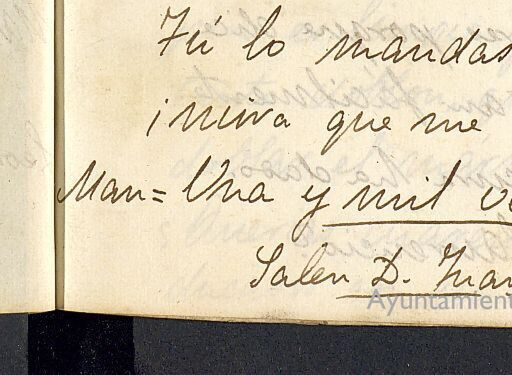 Tú lo mandas
¡mira que me
Man= Una y mil ve
Salen D. Juan
Ayuntamient